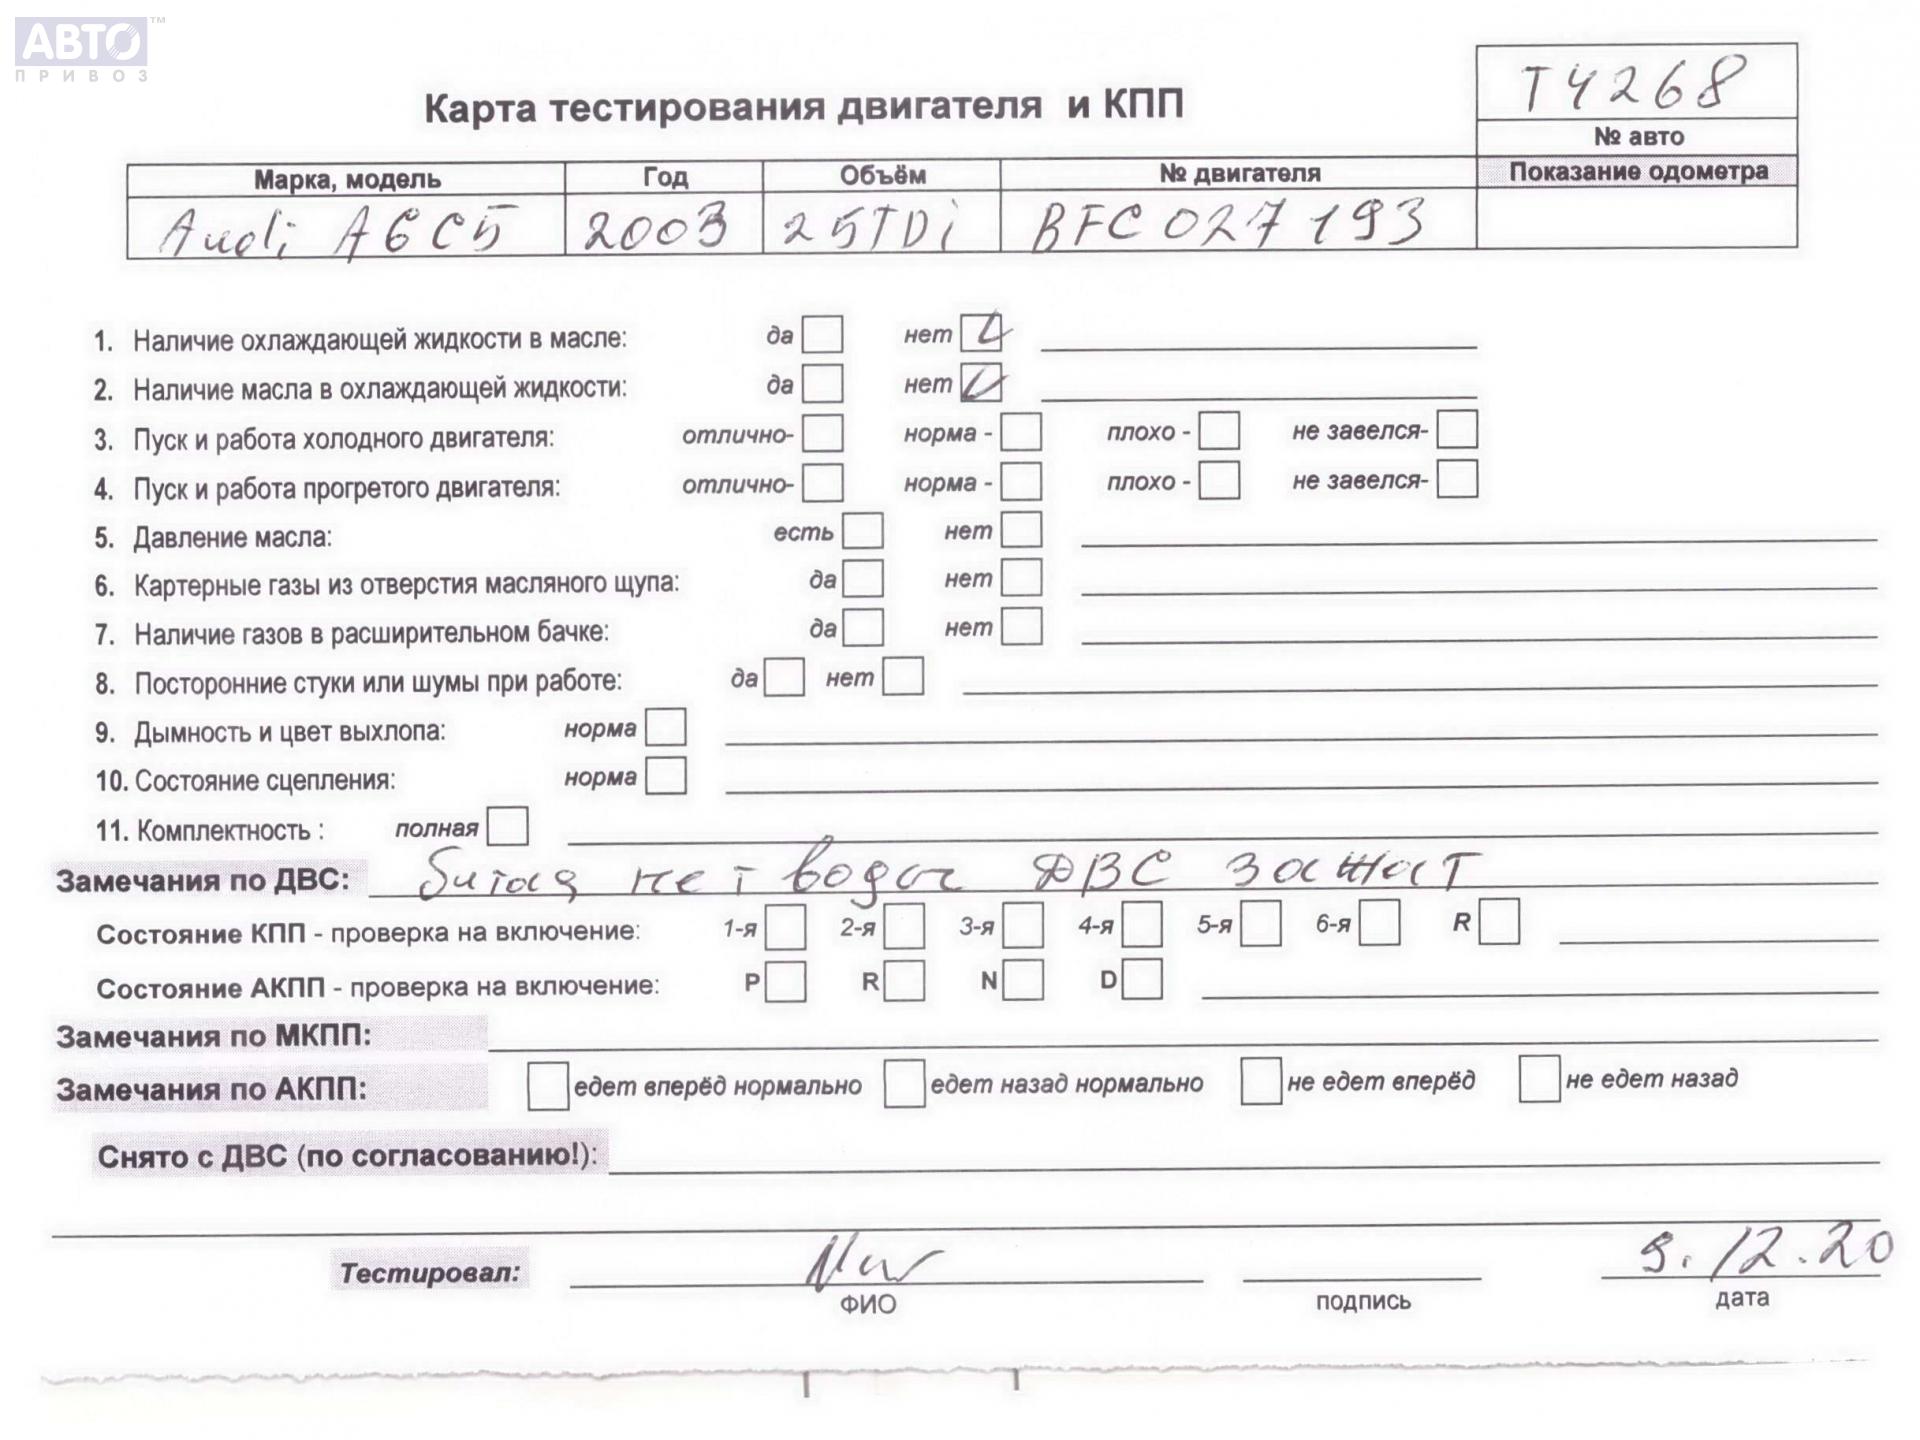 АВТО™
ПРИВОЗ
Т4268
Карта тестирования двигателя и КПП
№ авто
Марка, модель Год Объём № двигателя Показание одометра
Audi A6C5 2003 25TDi BFC 027193
1. Наличие охлаждающей жидкости в масле: да нет
2. Наличие масла в охлаждающей жидкости: да нет
3. Пуск и работа холодного двигателя: отлично- норма - плохо - не завелся-
4. Пуск и работа прогретого двигателя: отлично- норма - плохо - не завелся-
5. Давление масла: есть нет
6. Картерные газы из отверстия масляного щупа: да нет
7. Наличие газов в расширительном бачке: да нет
8. Посторонние стуки или шумы при работе: да нет
9. Дымность и цвет выхлопа: норма
10. Состояние сцепления: норма
11. Комплектность : полная
Замечания по ДВС: битая нет воды ДВС зажат
Состояние КПП - проверка на включение: 1-я 2-я 3-я 4-я 5-я 6-я R
Состояние АКПП - проверка на включение: P R N D
Замечания по МКПП:
Замечания по АКПП: едет вперёд нормально едет назад нормально не едет вперёд не едет назад
Снято с ДВС (по согласованию!):
Тестировал: 9.12.20
ФИО подпись дата